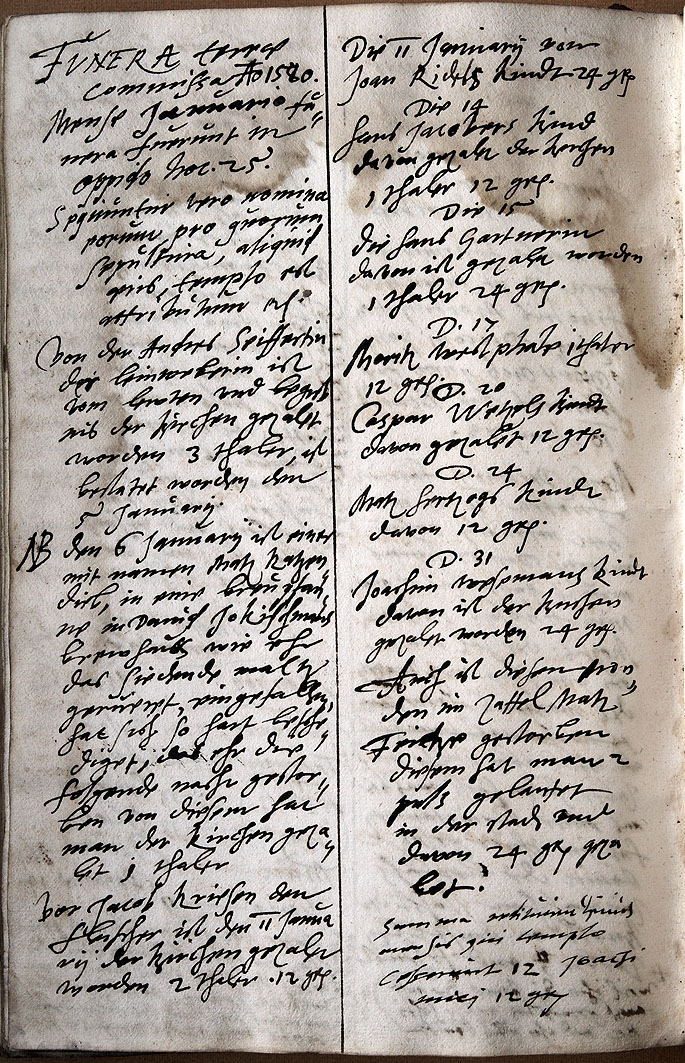 FUNERA terrae
commissa Ao 1580.
Mense Januario fu-
nera fuerunt in
oppido hoc. 25.
Sequuntur vero nomina
eorum pro quorum
sepultura, aliquid
aeris, templo est
attributum
Von der Andres Seiffertin
der leinweberin ist
vom leuten und begreb
nis der Kirchen gezalt
worden 3 thaler, ist
bestatet worden den
5 January.
NB den 6 January ist einer
mit namen Matz
in eine breupfan
ne in
brewhaus wie ehr
das siedende maltz
gerueret, eingefallen,
hat sich so hart besche
diget, das ehr die
folgende nacht gestor-
ben von diesem hat
man der Kirchen geza
let 1 thaler
Vor Jacob Kriesen den
fleischer ist den 11 Janua
rij der Kirchen gezalet
worden 2 thaler 12 grs.
Die 11 January vom
Joan Kindt 24 grs
Die 14
Hans Jacobers Kind
davon gezalt der Kirchen
1 thaler 12 grs.
Die 15
Die Hans Gartnerin
davon ist gezalt worden
1 thaler 24 grs.
D. 17
Moritz Westphale 1 thaler
12 grs. D. 20
Caspar Wetzels Kindt
davon gezalet 12 grs.
D. 24
Matz Hertzogs Kindt
davon 12 grs.
D. 31
Joachim Wesemans Kindt
davon ist der Kirchen
gezalet worden 24 grs.
Auch ist diesen mon
den im Matz
Fritze gestorben
diesem hat man 2
puls gelautet
in der stadt und
davon 24 grs geza
let.
Summa
templo
12
12 grs